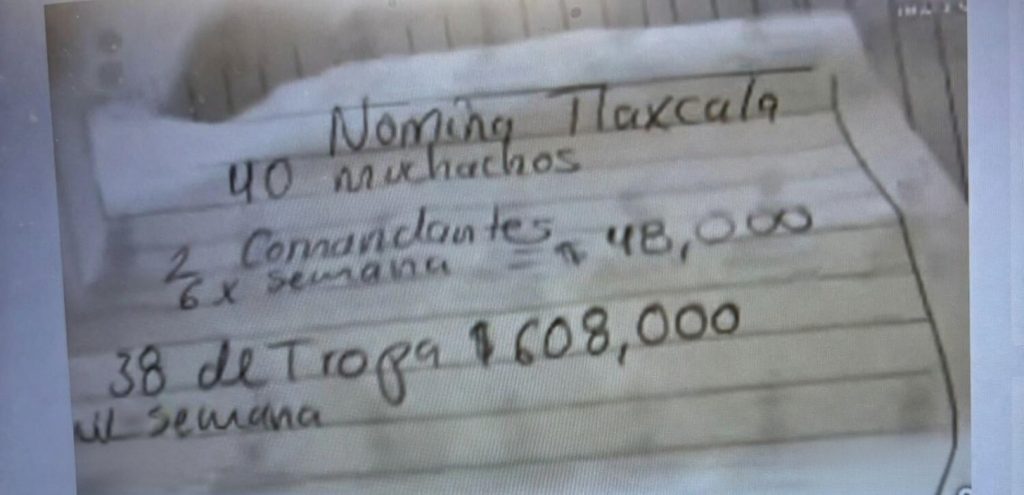 Nomina Tlaxcala
40 muchachos
2 Comandantes
6 x semana = $ 48,000
38 de Tropa $ 608,000
semana